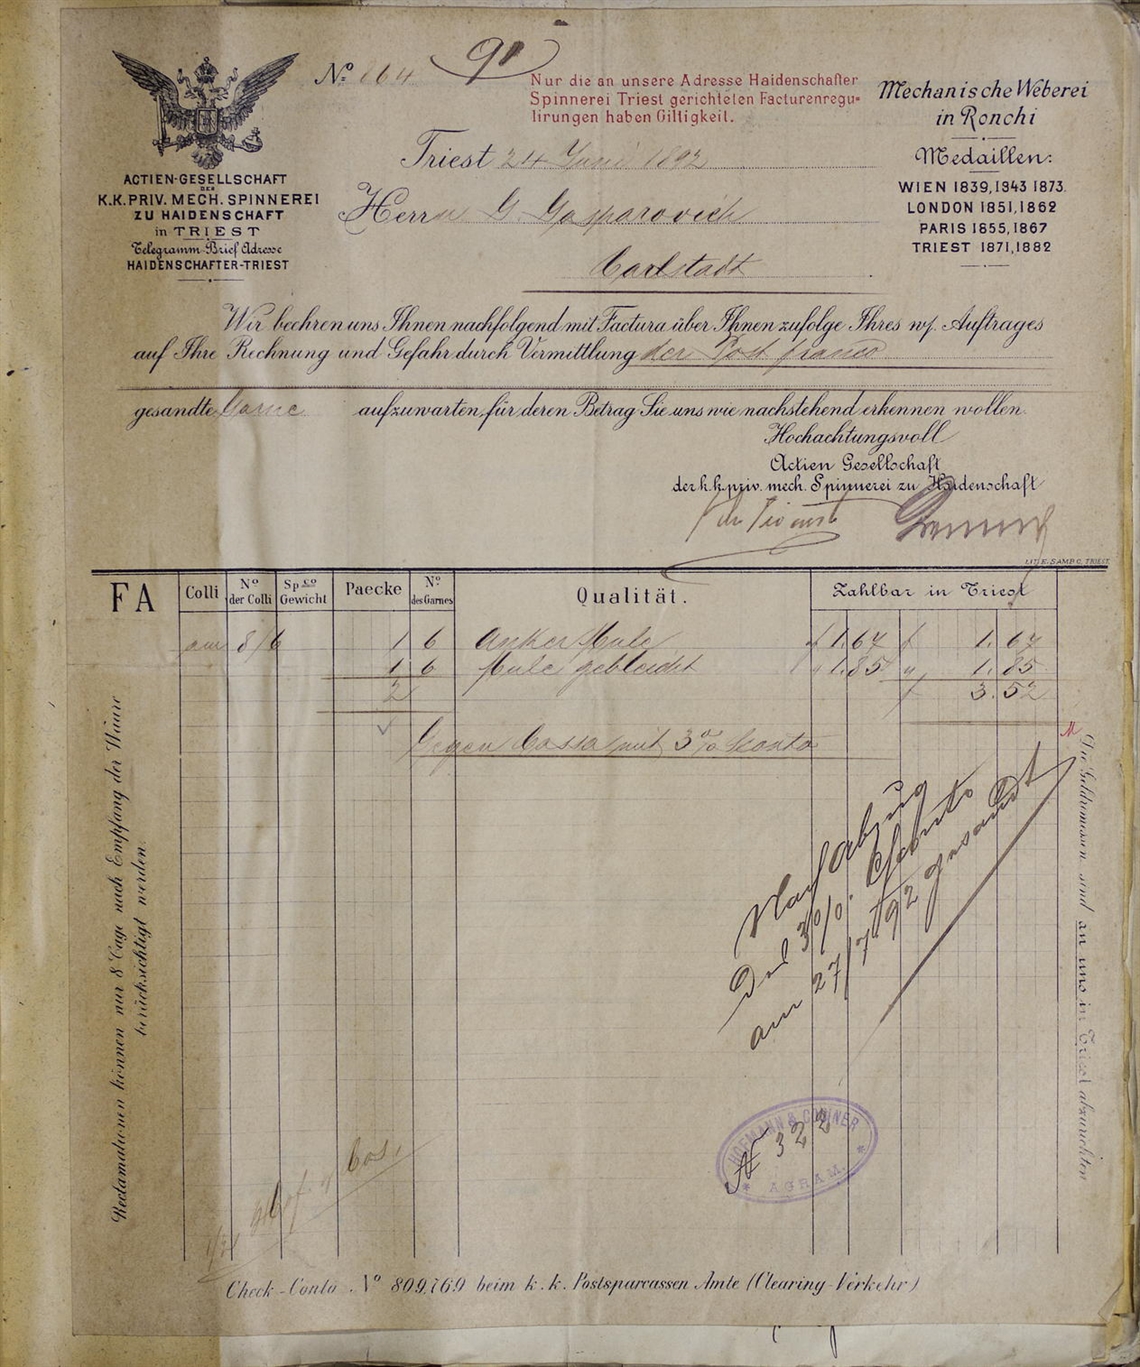 No 664
90
Nur die an unsere Adresse Haidenschafter
Spinnerei Triest gerichteten Facturenregu-
lirungen haben Giltigkeit.
Mechanische Weberei
in Ronchi
Medaillen:
WIEN 1839,1943 1873.
LONDON 1851,1862
PARIS 1855,1867
TRIEST 1871,1882
ACTIEN-GESELLSCHAFT
DER
K.K. PRIV. MECH. SPINNEREI
ZU HAIDENSCHAFT
in TRIEST
Telegramm-Brief Adresse
HAIDENSCHAFTER-TRIEST
Triest 24 Juni 1892
Herrn G Gasparovich
Carlstadt
Wir beehren uns Ihnen nachfolgend mit Factura über Ihnen zufolge Ihres w/. Auftrages
auf Ihre Rechnung und Gefahr durch Vermittlung der Post franco
gesandte Garne aufzuwarten, für deren Betrag Sie uns wie nachstehend erkennen wollen.
Hochachtungsvoll
Actien Gesellschaft
der k.k. priv. mech. Spinnerei zu Haidenschaft
LIT. E. SAMBO, TRIEST
FA
Colli No der Colli Spco Gewicht Paecke No des Garnes Qualität. Zahlbar in Triest
8/6 1 6 Anker Mule f 1.67 f 1.67
1 6 Mule gebleicht " 1.85 " 1.85
2 f 3.52
Gegen Cassa mit 3% Sconto
Nach Abzug
3% Sconto
am 27/7 92 gesandt
HOFMANN & AGRAM
N 322
Reclamationen können nur 8 Tage nach Empfang der Waare
berücksichtigt werden.
Die Geldremessen sind an uns in Triest abzurichten
Check-Conto No 809,769 beim k.k. Postsparcassen Amte (Clearing-Verkehr)